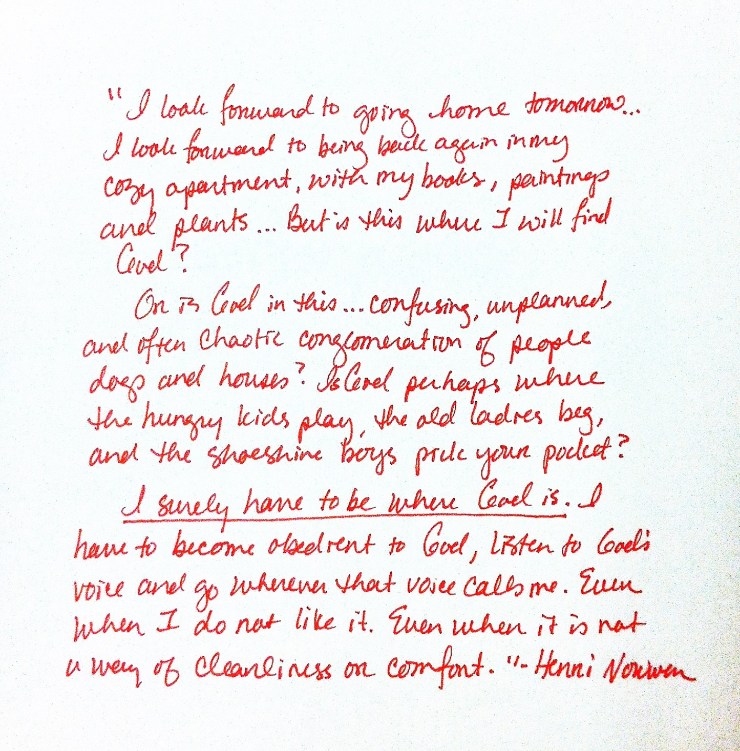 "I look forward to going home tomorrow...
I look forward to being back again in my
cozy apartment, with my books, paintings
and plants... But is this where I will find
God?
Or is God in this... confusing, unplanned,
and often chaotic conglomeration of people
dogs and houses? Is God perhaps where
the hungry kids play, the old ladies beg,
and the shoeshine boys pick your pocket?
I surely have to be where God is. I
have to become obedient to God, listen to God's
voice and go wherever that voice calls me. Even
when I do not like it. Even when it is not
a way of cleanliness or comfort." - Henri Nouwen